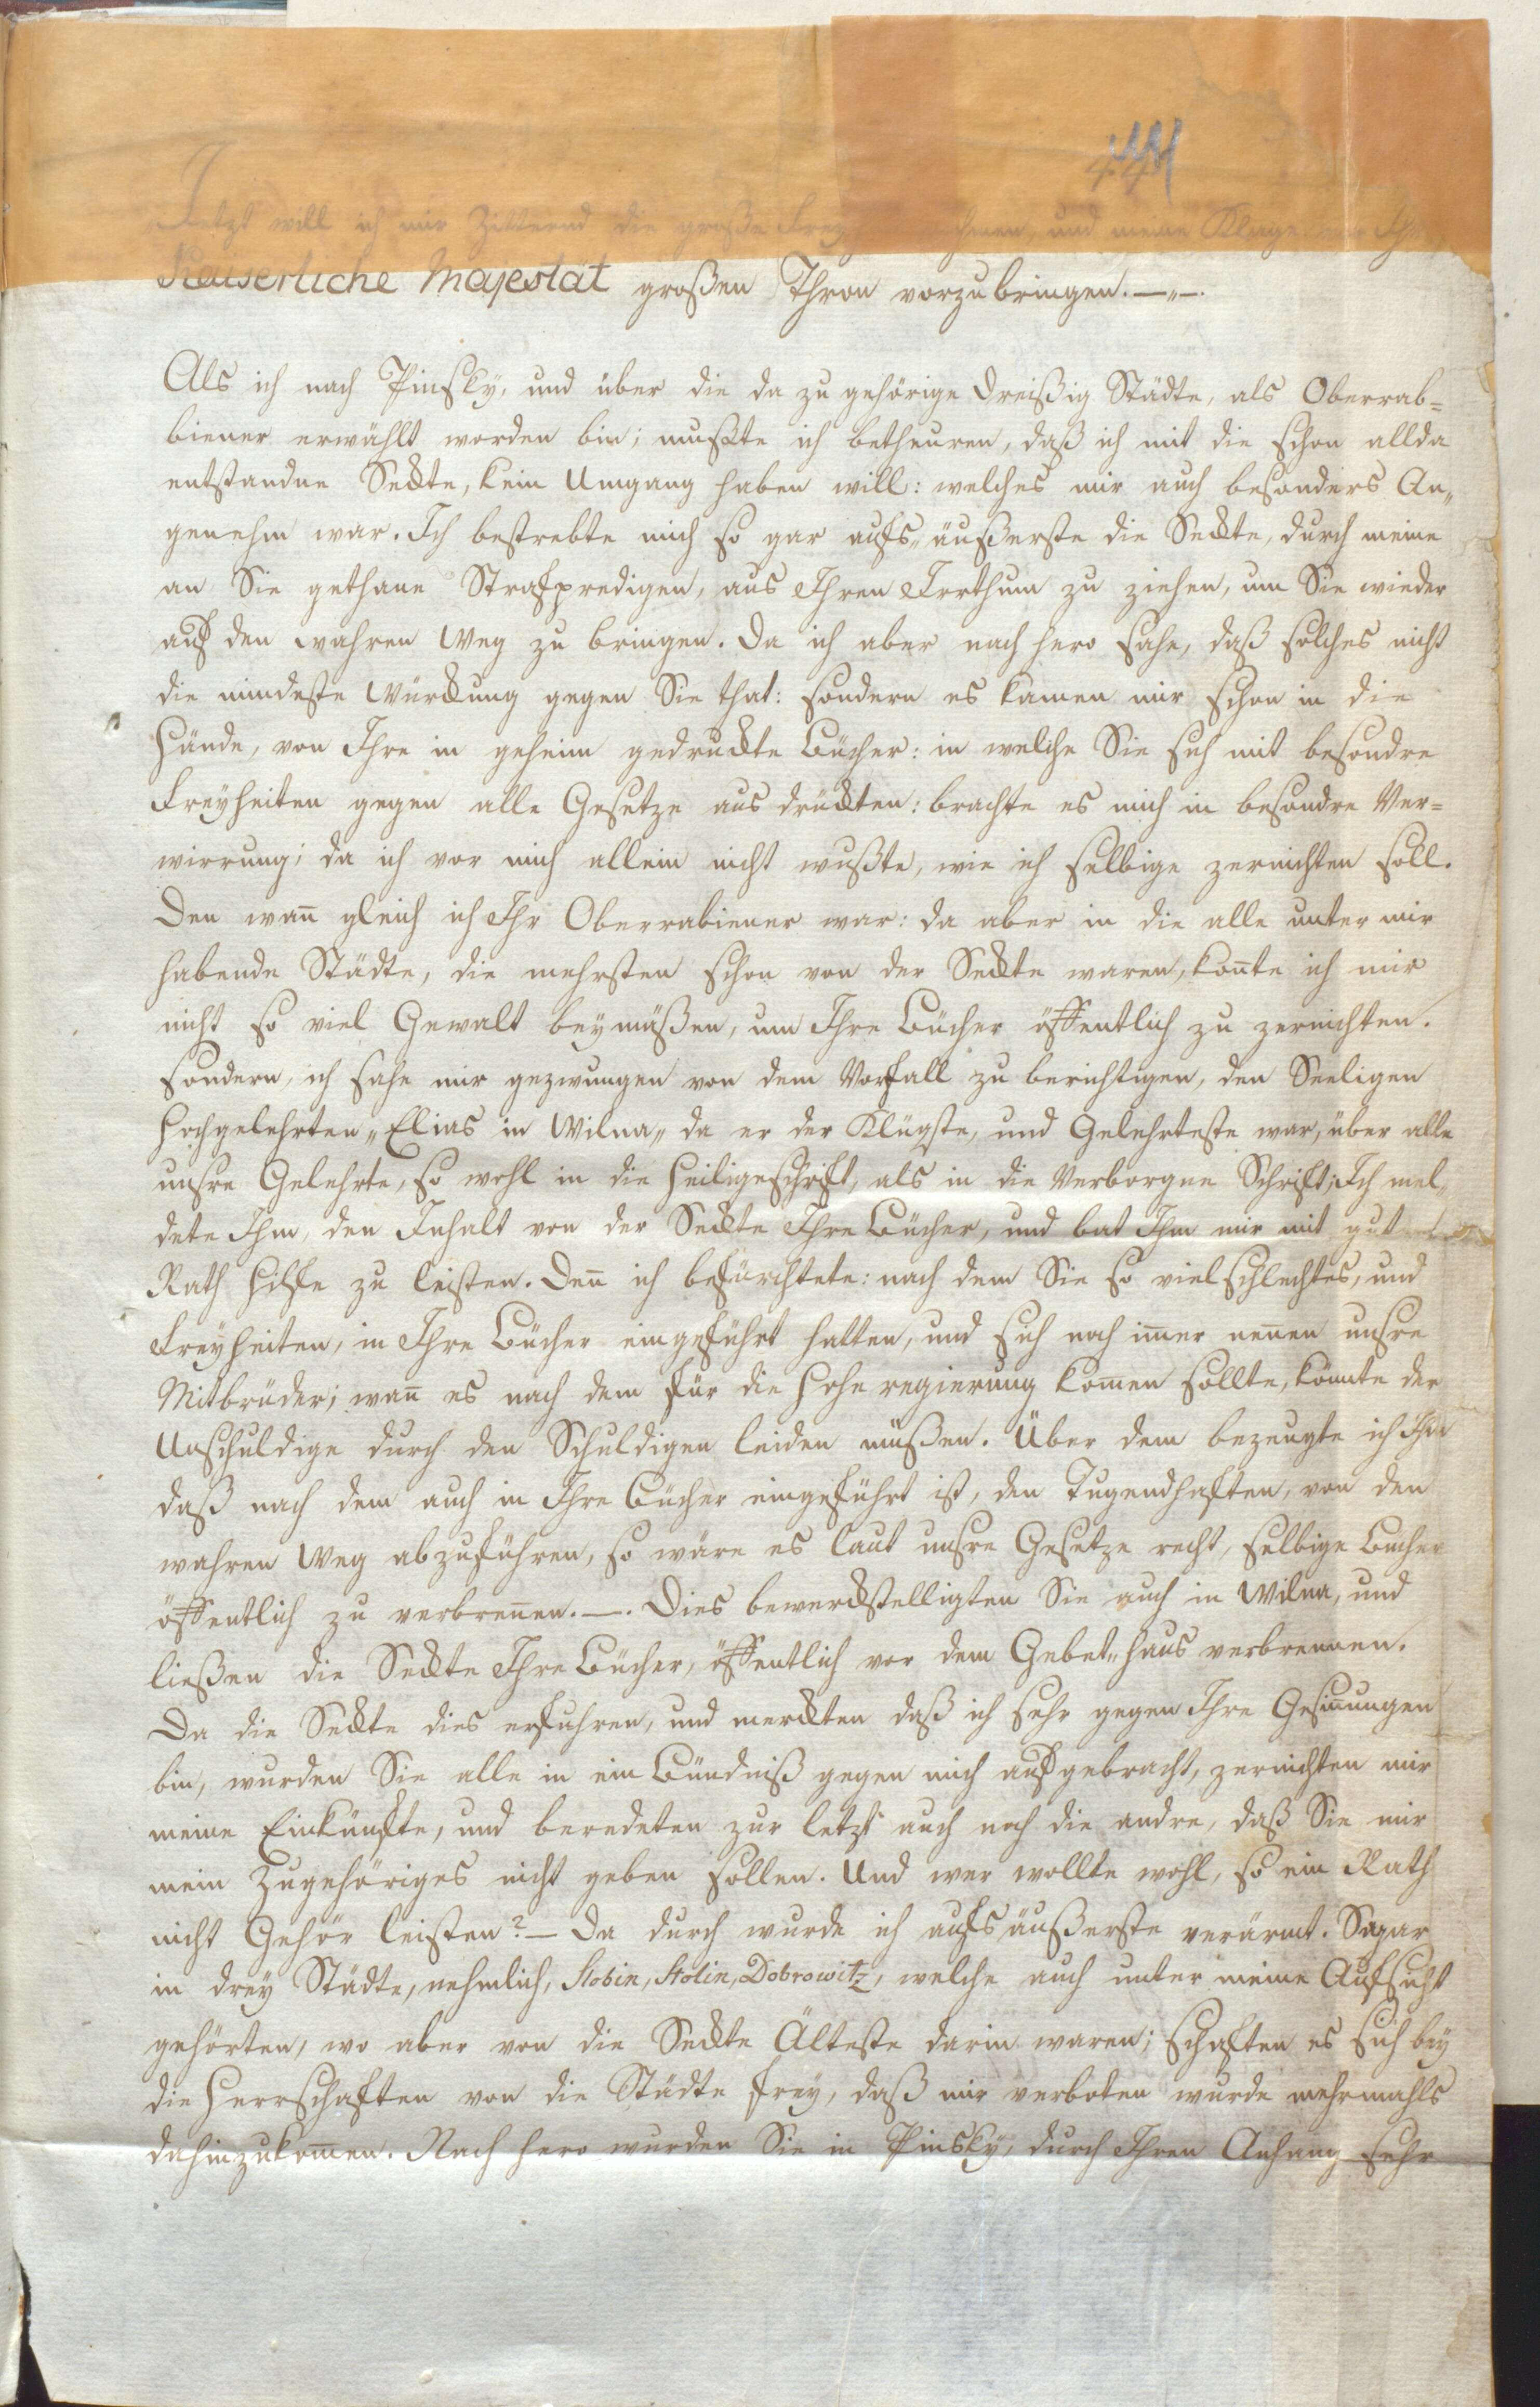 Jetzt will ich mir Zitternd die große Frey nehmen, und meine Klage vor Ihro
Kaiserliche Majestät großen Thron vorzubringen.—"—.
Als ich nach Pinsky, und über die da zu gehörige dreißig Städte, als Oberrab=
biener erwählt worden bin; mußte ich betheuren, daß ich mit die schon allda
entstandne Seckte, kein Umgang haben will: welches mir auch besonders An„
genehm war. Ich bestrebte mich so gar aufs„äußerste die Seckte, durch meine
an Sie gethane Strafpredigen, aus Ihren Irrthum zu ziehen, um Sie wieder
auf den wahren Weg zu bringen. Da ich aber nach hero sahe, daß solches nicht
die mindeste Würckung gegen Sie that: sondern es kamen mir schon in die
Hände, von Ihre in geheim gedruckte Bücher: in welche Sie sich mit besondre
Freyheiten gegen alle Gesetze aus drückten: brachte es mich in besondre Ver=
wirrung; da ich vor mich allein nicht wußte, wie ich selbige zernichten soll.
Den wan̄ gleich ich Ihr Oberrabiener war: da aber in die alle unter mir
habende Städte, die mehrsten schon von der Seckte waren, kon̄te ich mir
nicht so viel Gewalt beymäßen, um Ihre Bücher öffentlich zu zernichten.
sondern, ich sahe mir gezwungen von dem Vorfall zu berichtigen, den Seeligen
Hochgelehrten „Elias in Wilna„ da er der Klügste, und Gelehrteste war, über alle
unsre Gelehrte, so wohl in die Heiligeschrift, als in die Verborgne Schrift; Ich mel„
dete Ihm, den Inhalt von der Seckte Ihre Bücher, und bat Ihm mir mit gut
Rath Hilfe zu leisten. Den̄ ich befürchtete: nach dem Sie so viel schlechtes, und
Freyheiten, in Ihre Bücher eingeführt hatten, und sich noch im̄er nen̄en unsre
Mitbrüder; wan̄ es nach dem für die Hohe regierung kom̄en sollte, könnte der
Unschuldige durch den Schuldigen leiden müßen. Über dem bezeugte ich Ihm
daß nach dem auch in Ihre Bücher eingeführt ist, den Tugendhaften, von den
wahren Weg abzuführen, so wäre es laut unsre Gesetze recht, selbige Bücher
öffentlich zu verbren̄en.—. Dies bewerckstelligten Sie auch in Wilna, und
ließen die Seckte Ihre Bücher, öffentlich vor dem Gebet„haus verbrennen.
Da die Seckte dies erfuhren, und merckten daß ich sehr gegen Ihre Gesin̄ungen
bin, wurden Sie alle in ein Bündniß gegen mich aufgebracht, zernichten mir
meine Einkünfte, und beredeten zur letzt auch noch die andre, daß Sie mir
mein Zugehöriges nicht geben sollen. Und wer wollte wohl, so ein Rath
nicht Gehör leisten?— Da durch wurde ich aufs äußerste verärmt. Sogar
in drey Städte, nehmlich, Stobin, Stolin, Dobrowitz, welche auch unter meine Aufsicht
gehörten, wo aber von die Seckte Älteste darin waren; schaften es sich bey
die Herrschaften von die Städte frey, daß mir verboten wurde mehrmahls
dahinzukom̄en. Nach hero wurden Sie in Pinsky, durch Ihren Anhang sehr